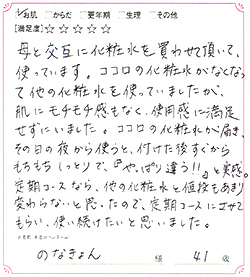 お肌 からだ 更年期 生理 その他
[満足度]☆☆☆☆☆
母と交互に化粧水を買わせて頂いて、
使っています。ココロの化粧水がなくなっ
て他の化粧水を使っていましたが、
肌にモチモチ感もなく、使用感に満足
せずにいました。ココロの化粧水が届き、
その日の夜から使うと、付けた後すぐから
もちもちしっとりで、『やっぱり違う!!』と実感。
定期コースなら、他の化粧水と値段もあまり
変わらないと思ったので、定期コースにさせて
もらい、使い続けたいと思いました。
のなきょん 様 41歳